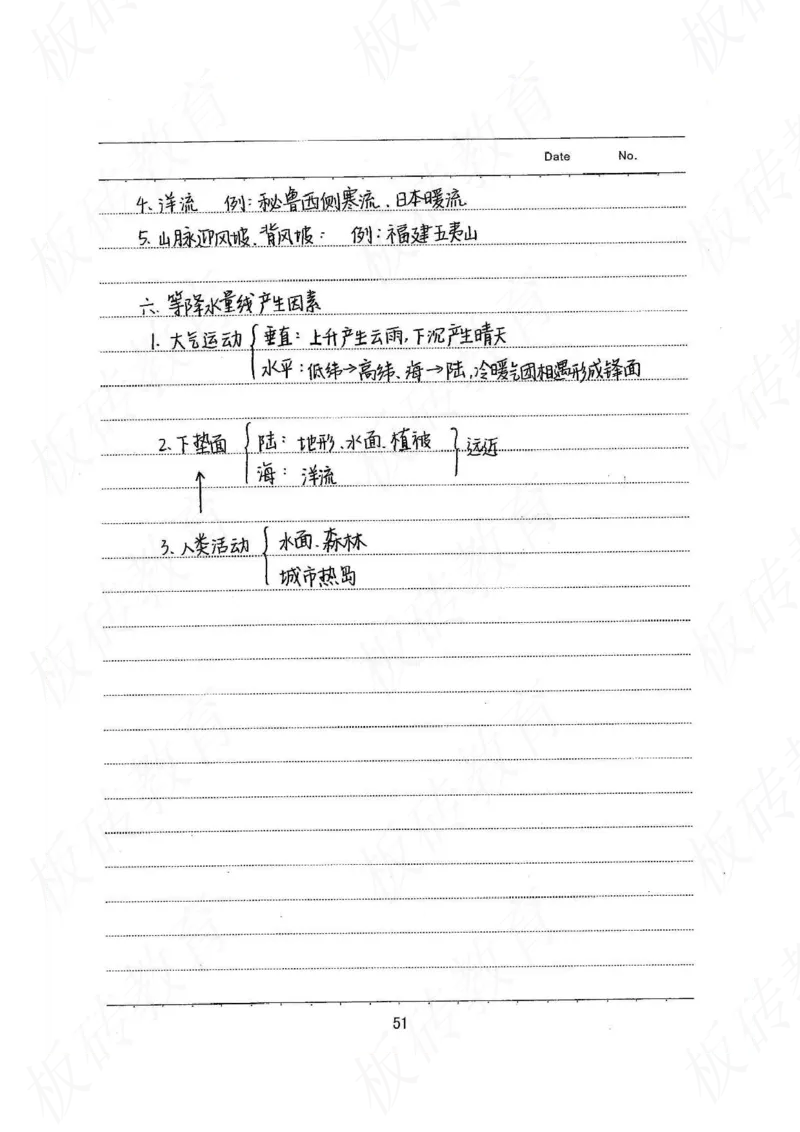 Date No.
4、洋流 例：秘鲁西侧寒流、日本暖流
5、山脉迎风坡、背风坡： 例：福建五夷山
六、等降水量线产生因素
1、大气运动 { 垂直：上升产生云雨，下沉产生晴天
水平：低纬→高纬、海→陆，冷暖气团相遇形成锋面
2、下垫面 { 陆：地形、水面、植被 } 远近
海：洋流
↑
3、人类活动 { 水面、森林
城市热岛
51
板砖教育